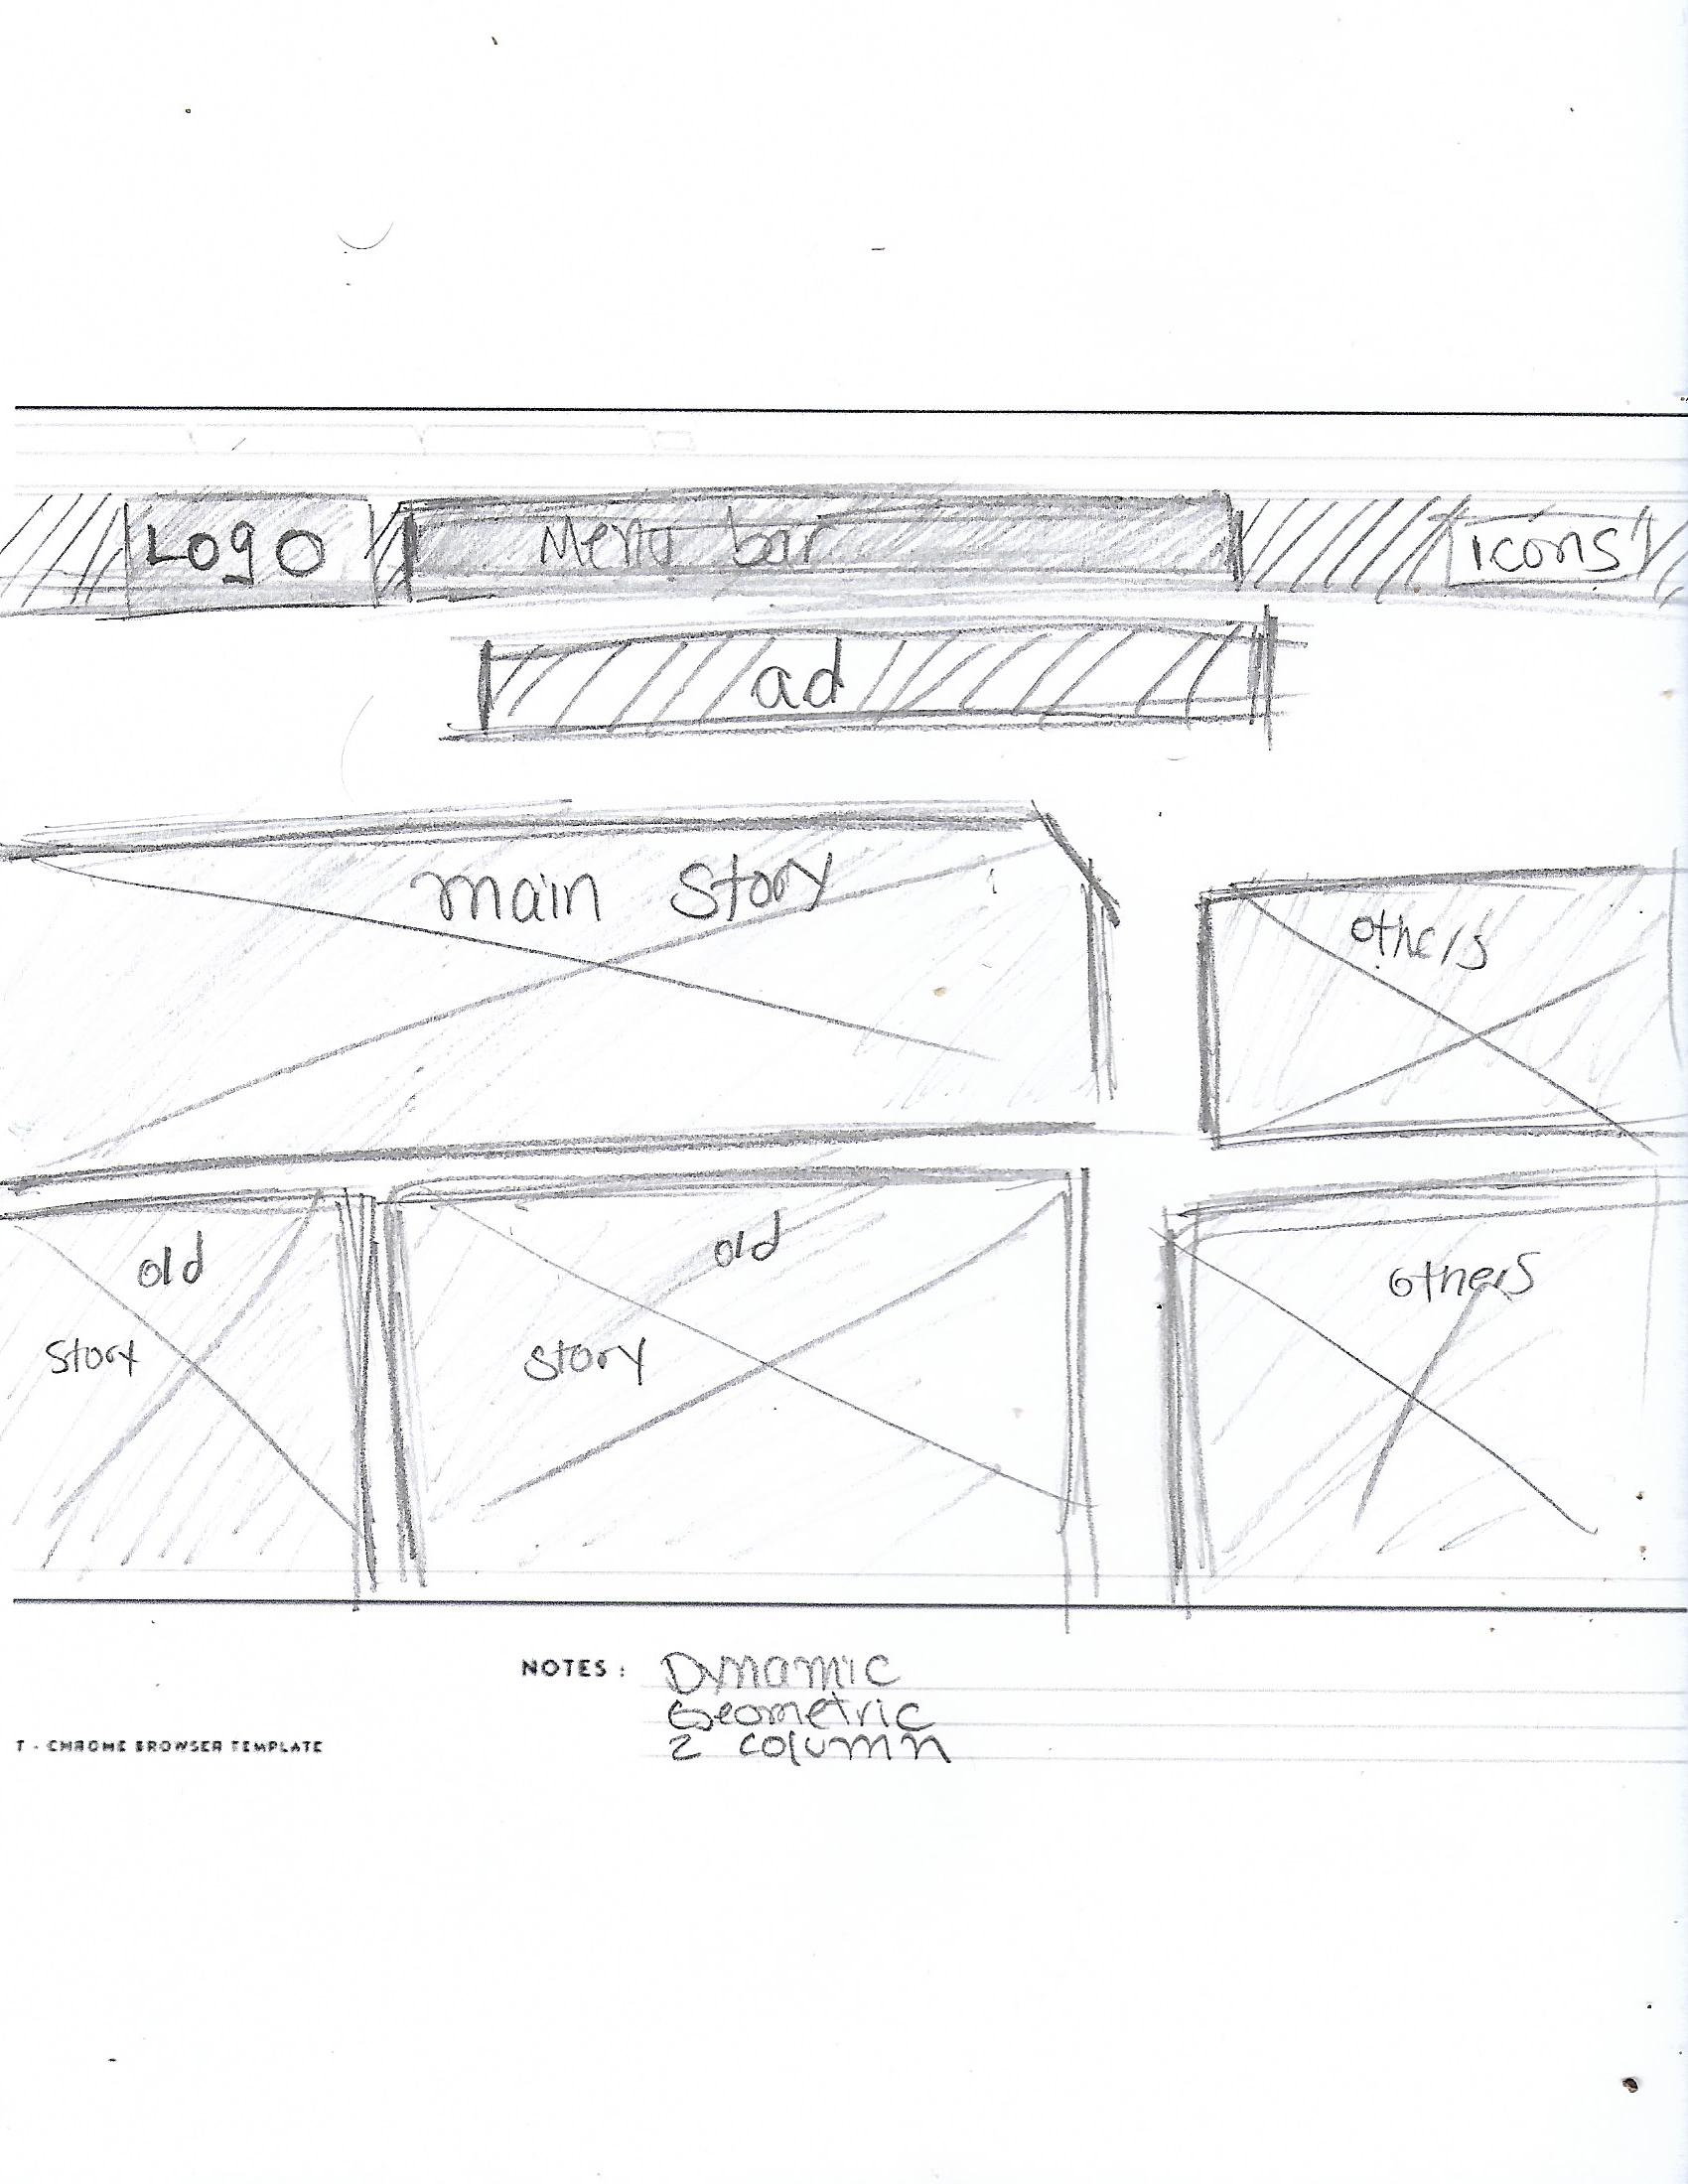 Logo
Menu bar
icons
ad
main story
others
old
story
old
story
others
NOTES: Dynamic
Geometric
2 column
T - CHROME BROWSER TEMPLATE